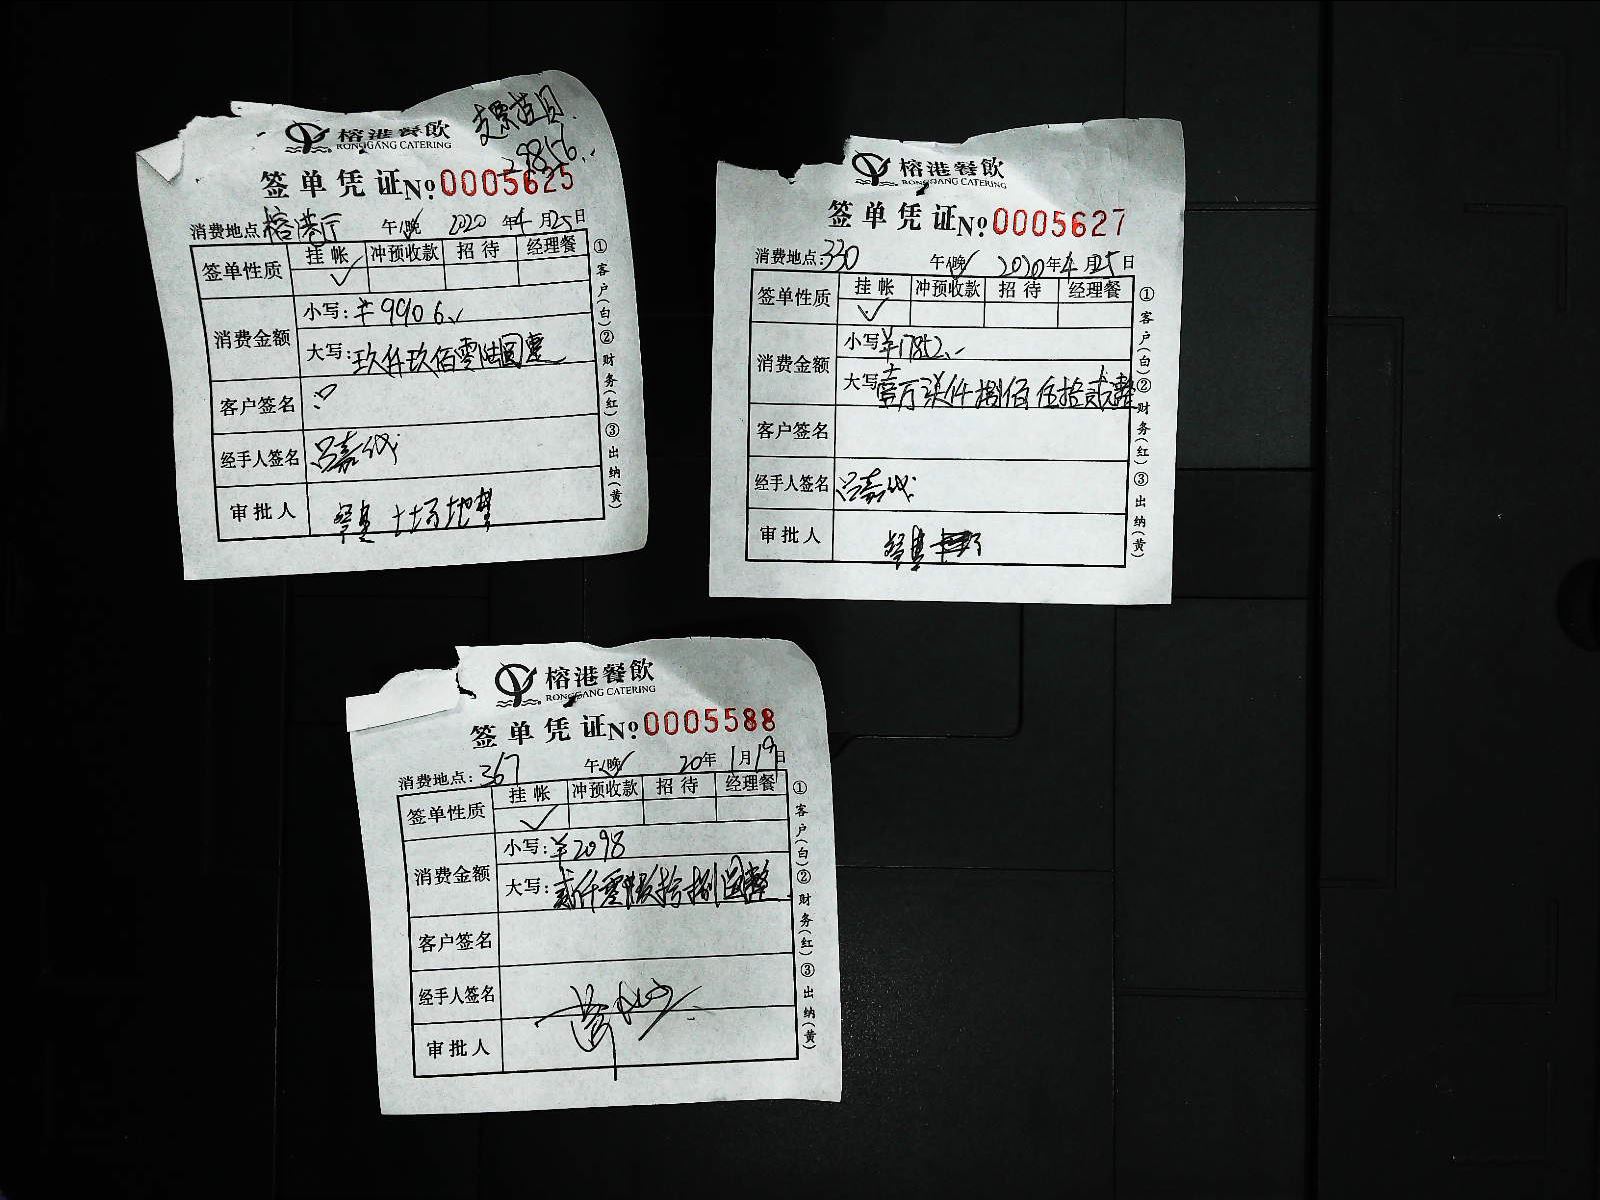 支票
29856.-
榕港餐飲
RONGGANG CATERING
签单凭证 No 0005625
消费地点 榕港厅 午(晚 2020年4月25日
签单性质 挂帐 冲预收款 招待 经理餐
消费金额 小写:¥9906.-
大写:玖仟玖佰零陆圆整
客户签名
经手人签名
审批人 餐具 场地
①客户(白)②财务(红)③出纳(黄)
榕港餐飲
RONGGANG CATERING
签单凭证 No 0005627
消费地点:330 午(晚 2020年4月25日
签单性质 挂帐 冲预收款 招待 经理餐
消费金额 小写¥17852.-
大写壹万柒仟捌佰伍拾贰元整
客户签名
经手人签名
审批人 餐具
①客户(白)②财务(红)③出纳(黄)
榕港餐飲
RONGGANG CATERING
签单凭证 No 0005588
消费地点:367 午(晚 20年1月19日
签单性质 挂帐 冲预收款 招待 经理餐
消费金额 小写:¥2098
大写:贰仟零佰玖拾捌圆整
客户签名
经手人签名
审批人
①客户(白)②财务(红)③出纳(黄)